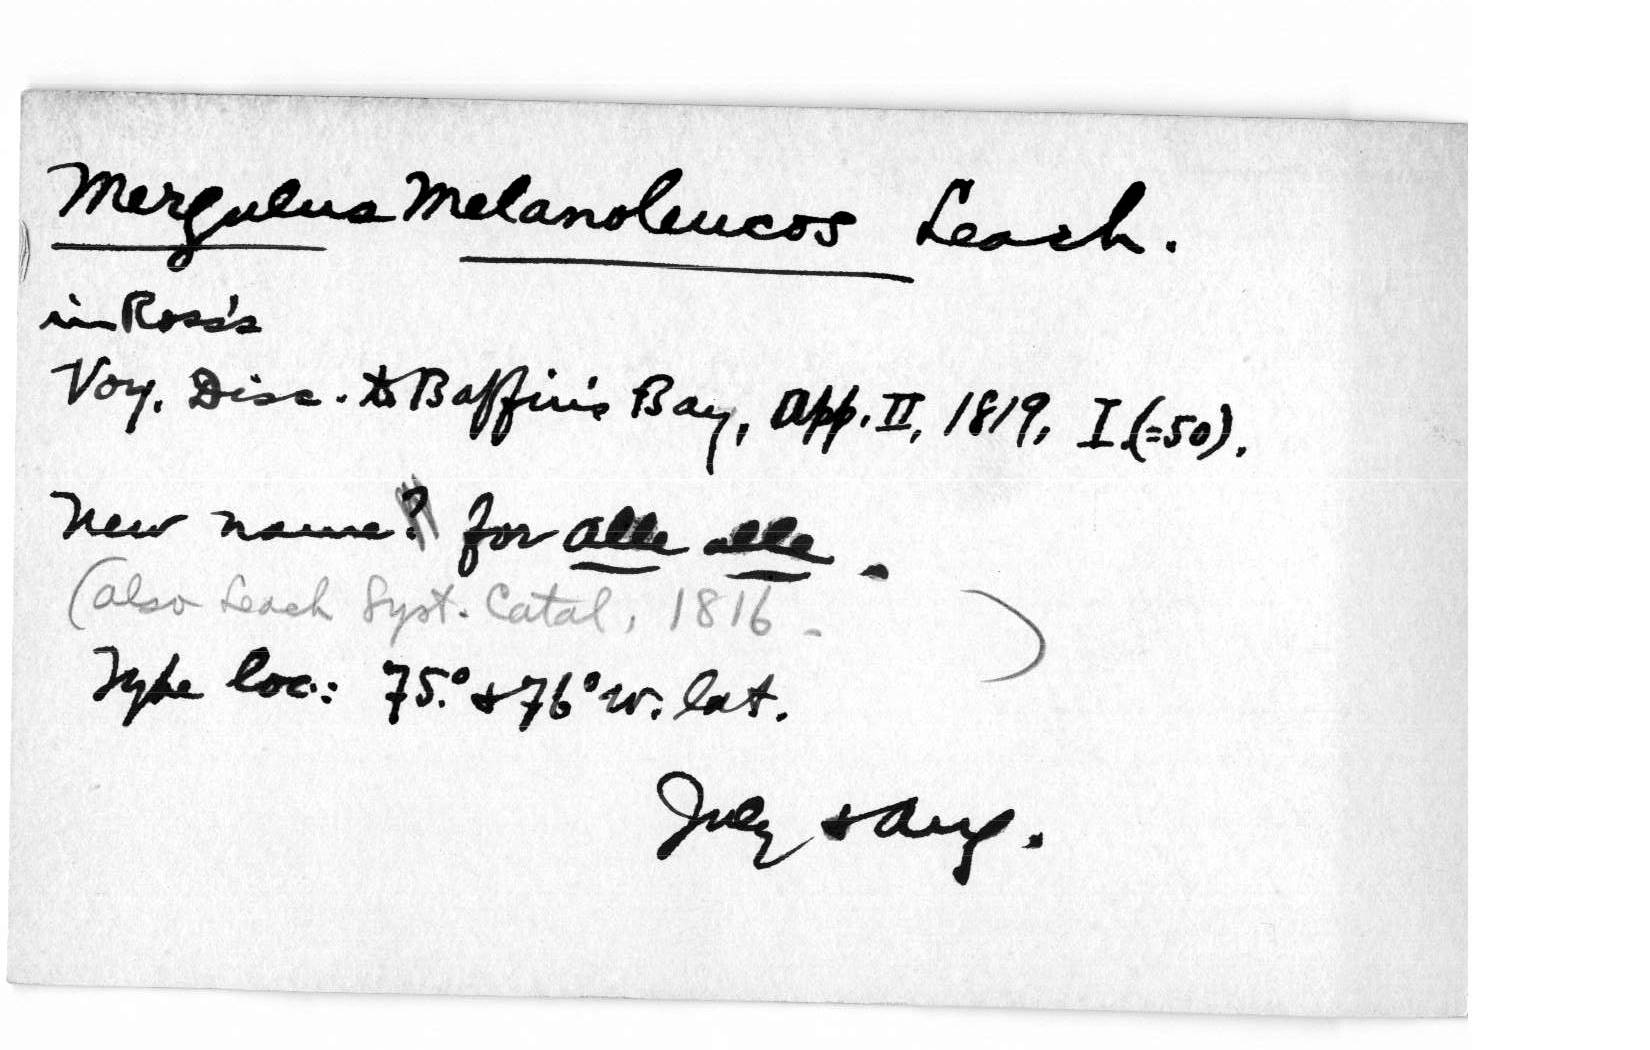 Mergulus Melanoleucos Leach.
in Ross's
Voy. Disc. to Baffin's Bay, App. II, 1819, I (=50).
New name? for Alle alle.
(also Leach Syst. Catal, 1816 - )
Type loc.: 75.° & 76° w. lat.
July & Aug.